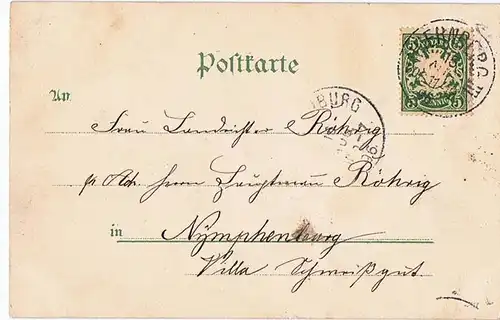 Postkarte
An
Frau Landrichter Röhrig
p. Adr. Herrn Hauptmann Röhrig
in Nymphenburg
Villa Schweißgut.
BURG
5 5